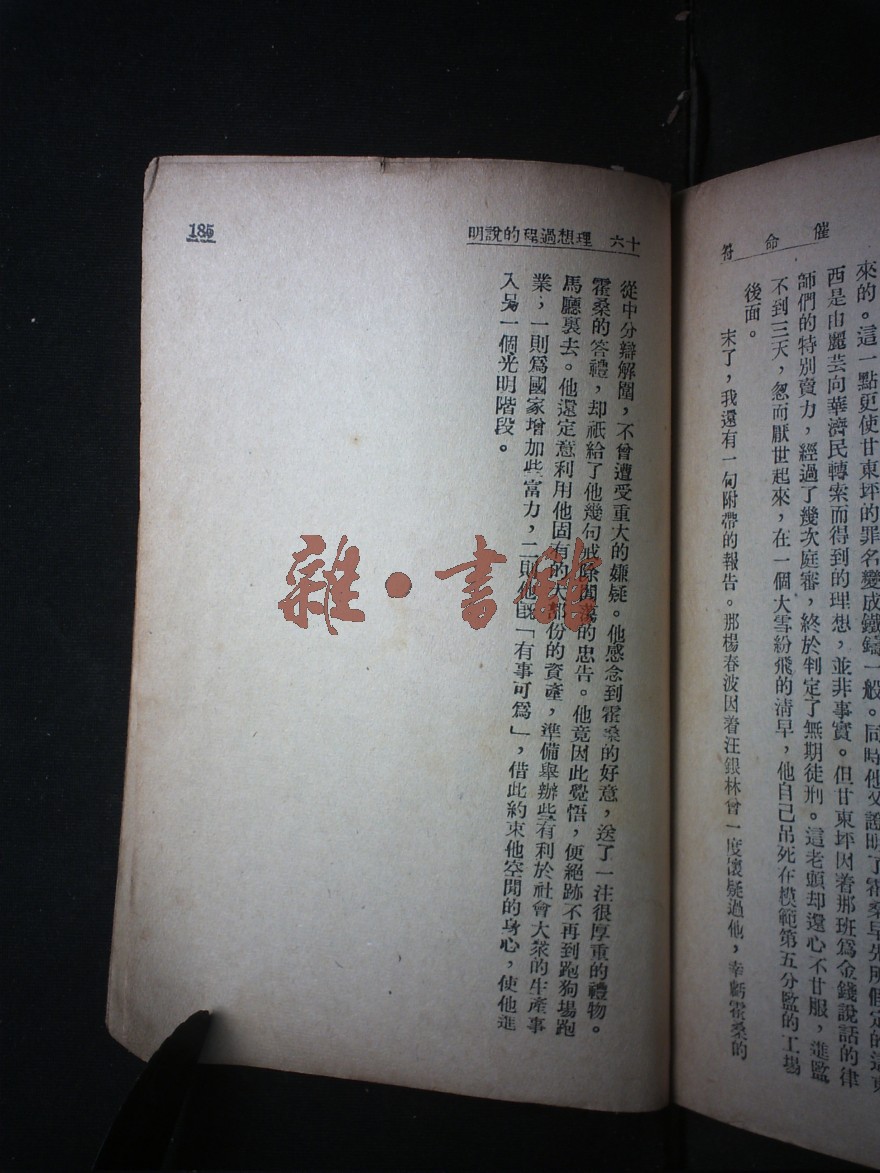 催命符
來的。這一點更使甘東坪的罪名變成鐵鑄一般。同時他又證明了霍桑早先所假定的這東
西是由麗芸向華濟民轉索而得到的理想，並非事實。但甘東坪因着那班爲金錢說話的律
師們的特別賣力，經過了幾次庭審，終於判定了無期徒刑。這老頭却還心不甘服，進監
不到三天，忽而厭世起來，在一個大雪紛飛的清早，他自己吊死在模範第五分監的工場
後面。
末了，我還有一句附帶的報告。那楊春波因着汪銀林曾一度懷疑過他，幸虧霍桑的
十六 理想過程的說明
185
從中分辯解圍，不曾遭受重大的嫌疑。他感念到霍桑的好意，送了一注很厚重的禮物。
霍桑的答禮，却祇給了他幾句戒除閒蕩的忠告。他竟因此覺悟，便絕跡不再到跑狗場跑
馬廳裏去。他還定意利用他固有的大部份的資產，準備舉辦些有利於社會大衆的生產事
業；一則爲國家增加些富力，二則他旣「有事可爲」，借此約束他空閒的身心，使他進
入另一個光明階段。
雜·書館